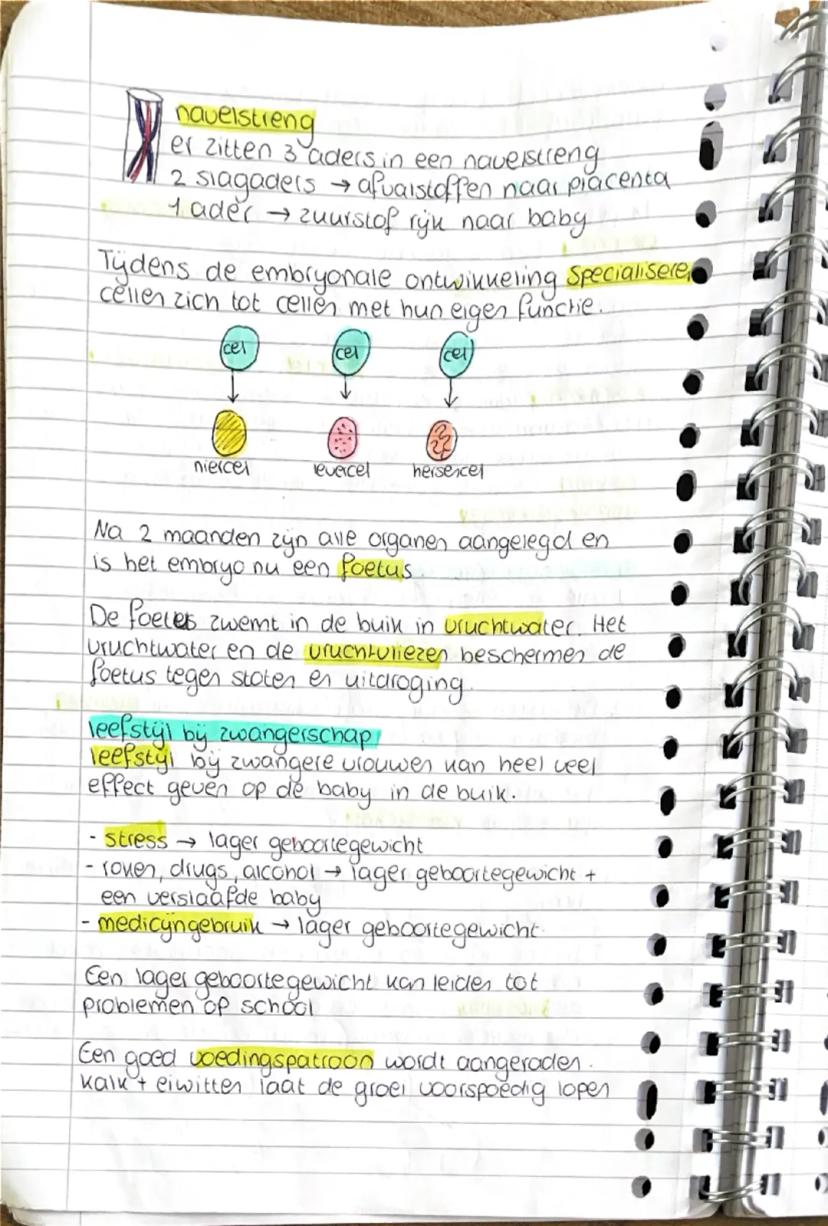 navelstreng
er zitten 3 aders in een navelstreng
2 slagaders → afvalstoffen naar placenta
1 ader → zuurstof rijk naar baby
Tijdens de embryonale ontwikkeling specialiseren
cellen zich tot cellen met hun eigen functie.
cel cel cel
niercel levercel hersencel
Na 2 maanden zijn alle organen aangelegd en
is het embryo nu een foetus.
De foetus zwemt in de buik in vruchtwater. Het
vruchtwater en de vruchtvliezen beschermen de
foetus tegen stoten en uitdroging.
leefstijl bij zwangerschap
leefstijl bij zwangere vrouwen kan heel veel
effect geven op de baby in de buik.
- stress → lager geboortegewicht
- roken, drugs, alcohol → lager geboortegewicht +
een verslaafde baby
- medicijngebruik → lager geboortegewicht
Een lager geboortegewicht kan leiden tot
problemen op school
Een goed voedingspatroon wordt aangeraden.
kalk + eiwitten laat de groei voorspoedig lopen